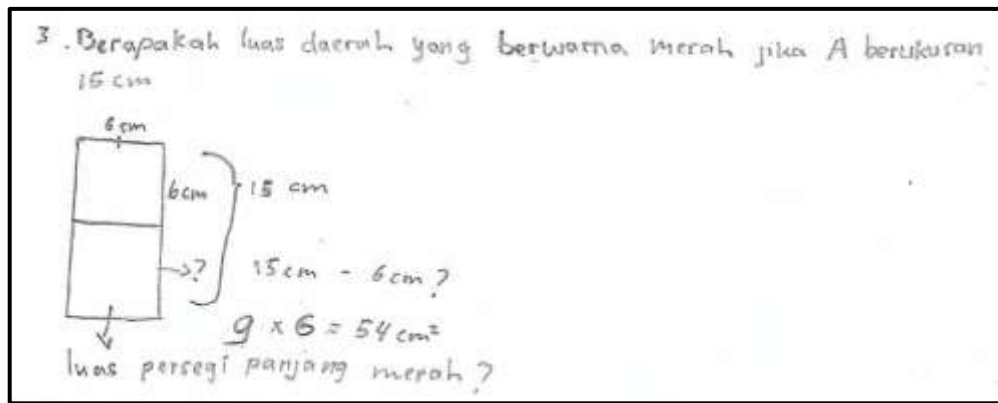 3. Berapakah luas daerah yang berwarna merah jika A berukuran
15 cm
6 cm
6cm } 15 cm
→? 15cm - 6cm?
9 x 6 = 54 cm²
luas persegi panjang merah?